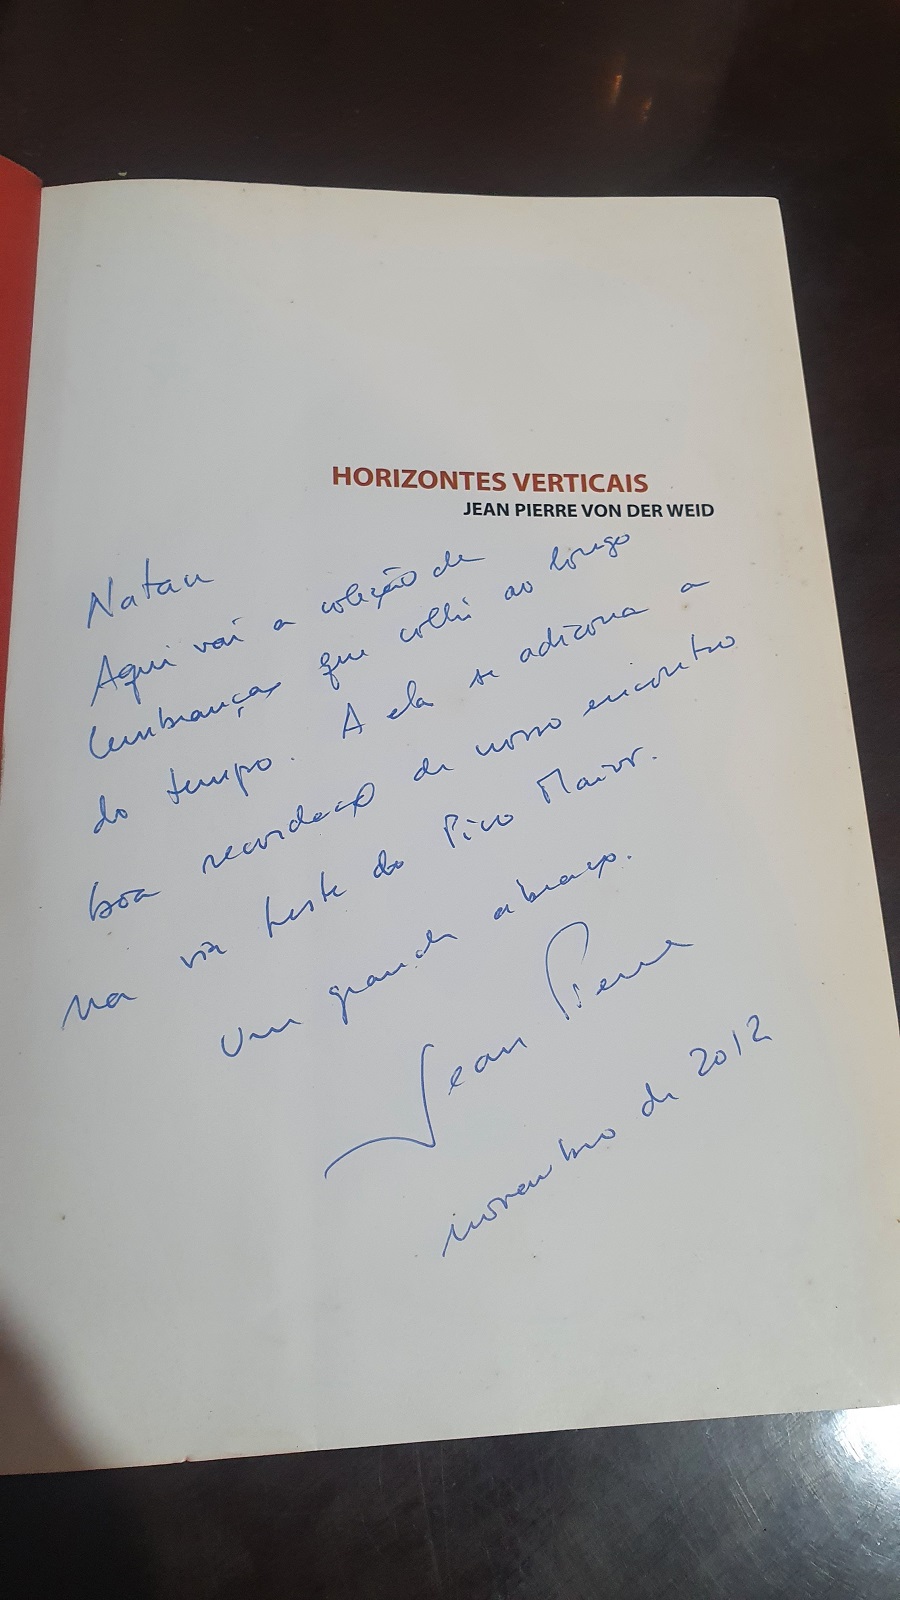 HORIZONTES VERTICAIS
JEAN PIERRE VON DER WEID
Natan
Aqui vai a coleção de
lembranças que colhi ao longo
do tempo. A ela se adiciona a
boa recordação de nosso encontro
na via leste do Pico Maior.
Um grande abraço.
Jean Pierre
novembro de 2012